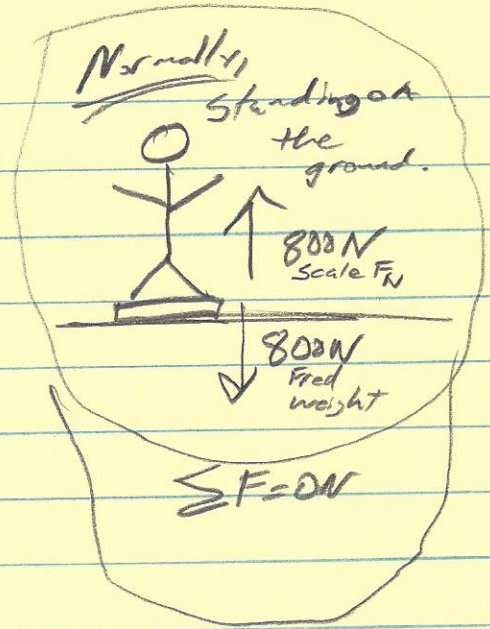 Normally,
Standing on
the
ground.
800N
Scale F_N
800N
Fred
weight
∑F=0N